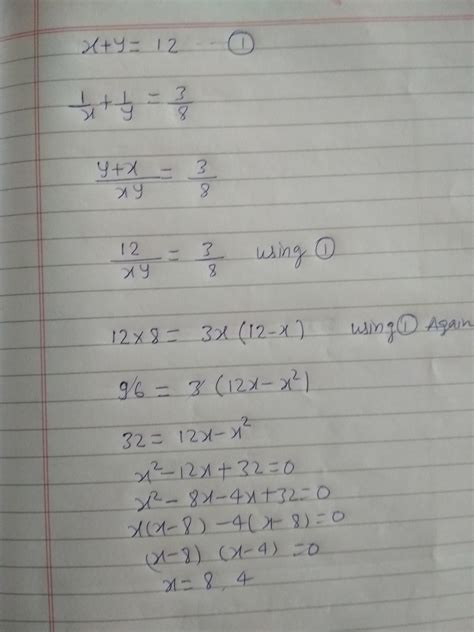 x+y = 12 --- ①
1/x + 1/y = 3/8
y+x/xy = 3/8
12/xy = 3/8 using ①
12×8 = 3x(12-x) using ① Again
96 = 3(12x-x²)
32 = 12x-x²
x²-12x+32=0
x²-8x-4x+32=0
x(x-8)-4(x-8)=0
(x-8) (x-4) =0
x= 8, 4